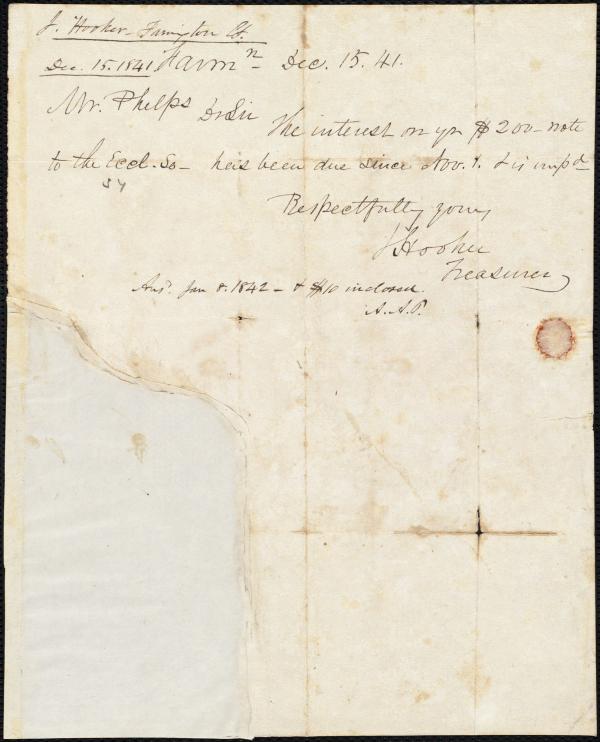 J. Hooker - Farmington Ct.
Dec. 15. 1841 Farmn- Dec. 15. 41.
Mr. Phelps Dr Sir
The interest on yr $200- note
to the Eccl. So- has been due since Nov. 1. & is unpd
54
Respectfully yours
J Hooker
Treasurer
Ansd. Jan 8. 1842 - & $10 inclosed.
A.A.P.